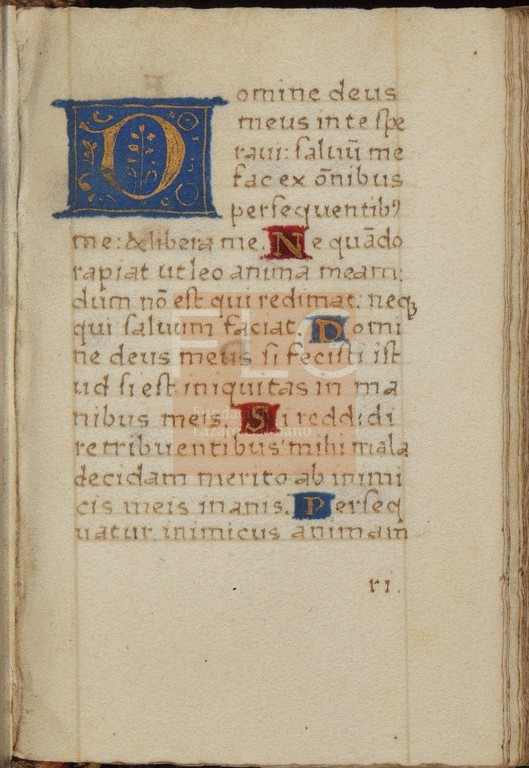 Domine deus
meus in te spe
raui: saluū me
fac ex ōnibus
persequentibꝰ
me: & libera me. Ne quādo
rapiat ut leo anima meam:
dum nō est qui redimat: neqꝫ
qui saluum faciat. Domi
ne deus meus si feci isti ist
ud si est iniquitas in ma
nibus meis. Si reddidi
retribuentibus mihi mala
decidam merito ab inimi
cis meis inanis. Perseq
uatur inimicus animam
FLG